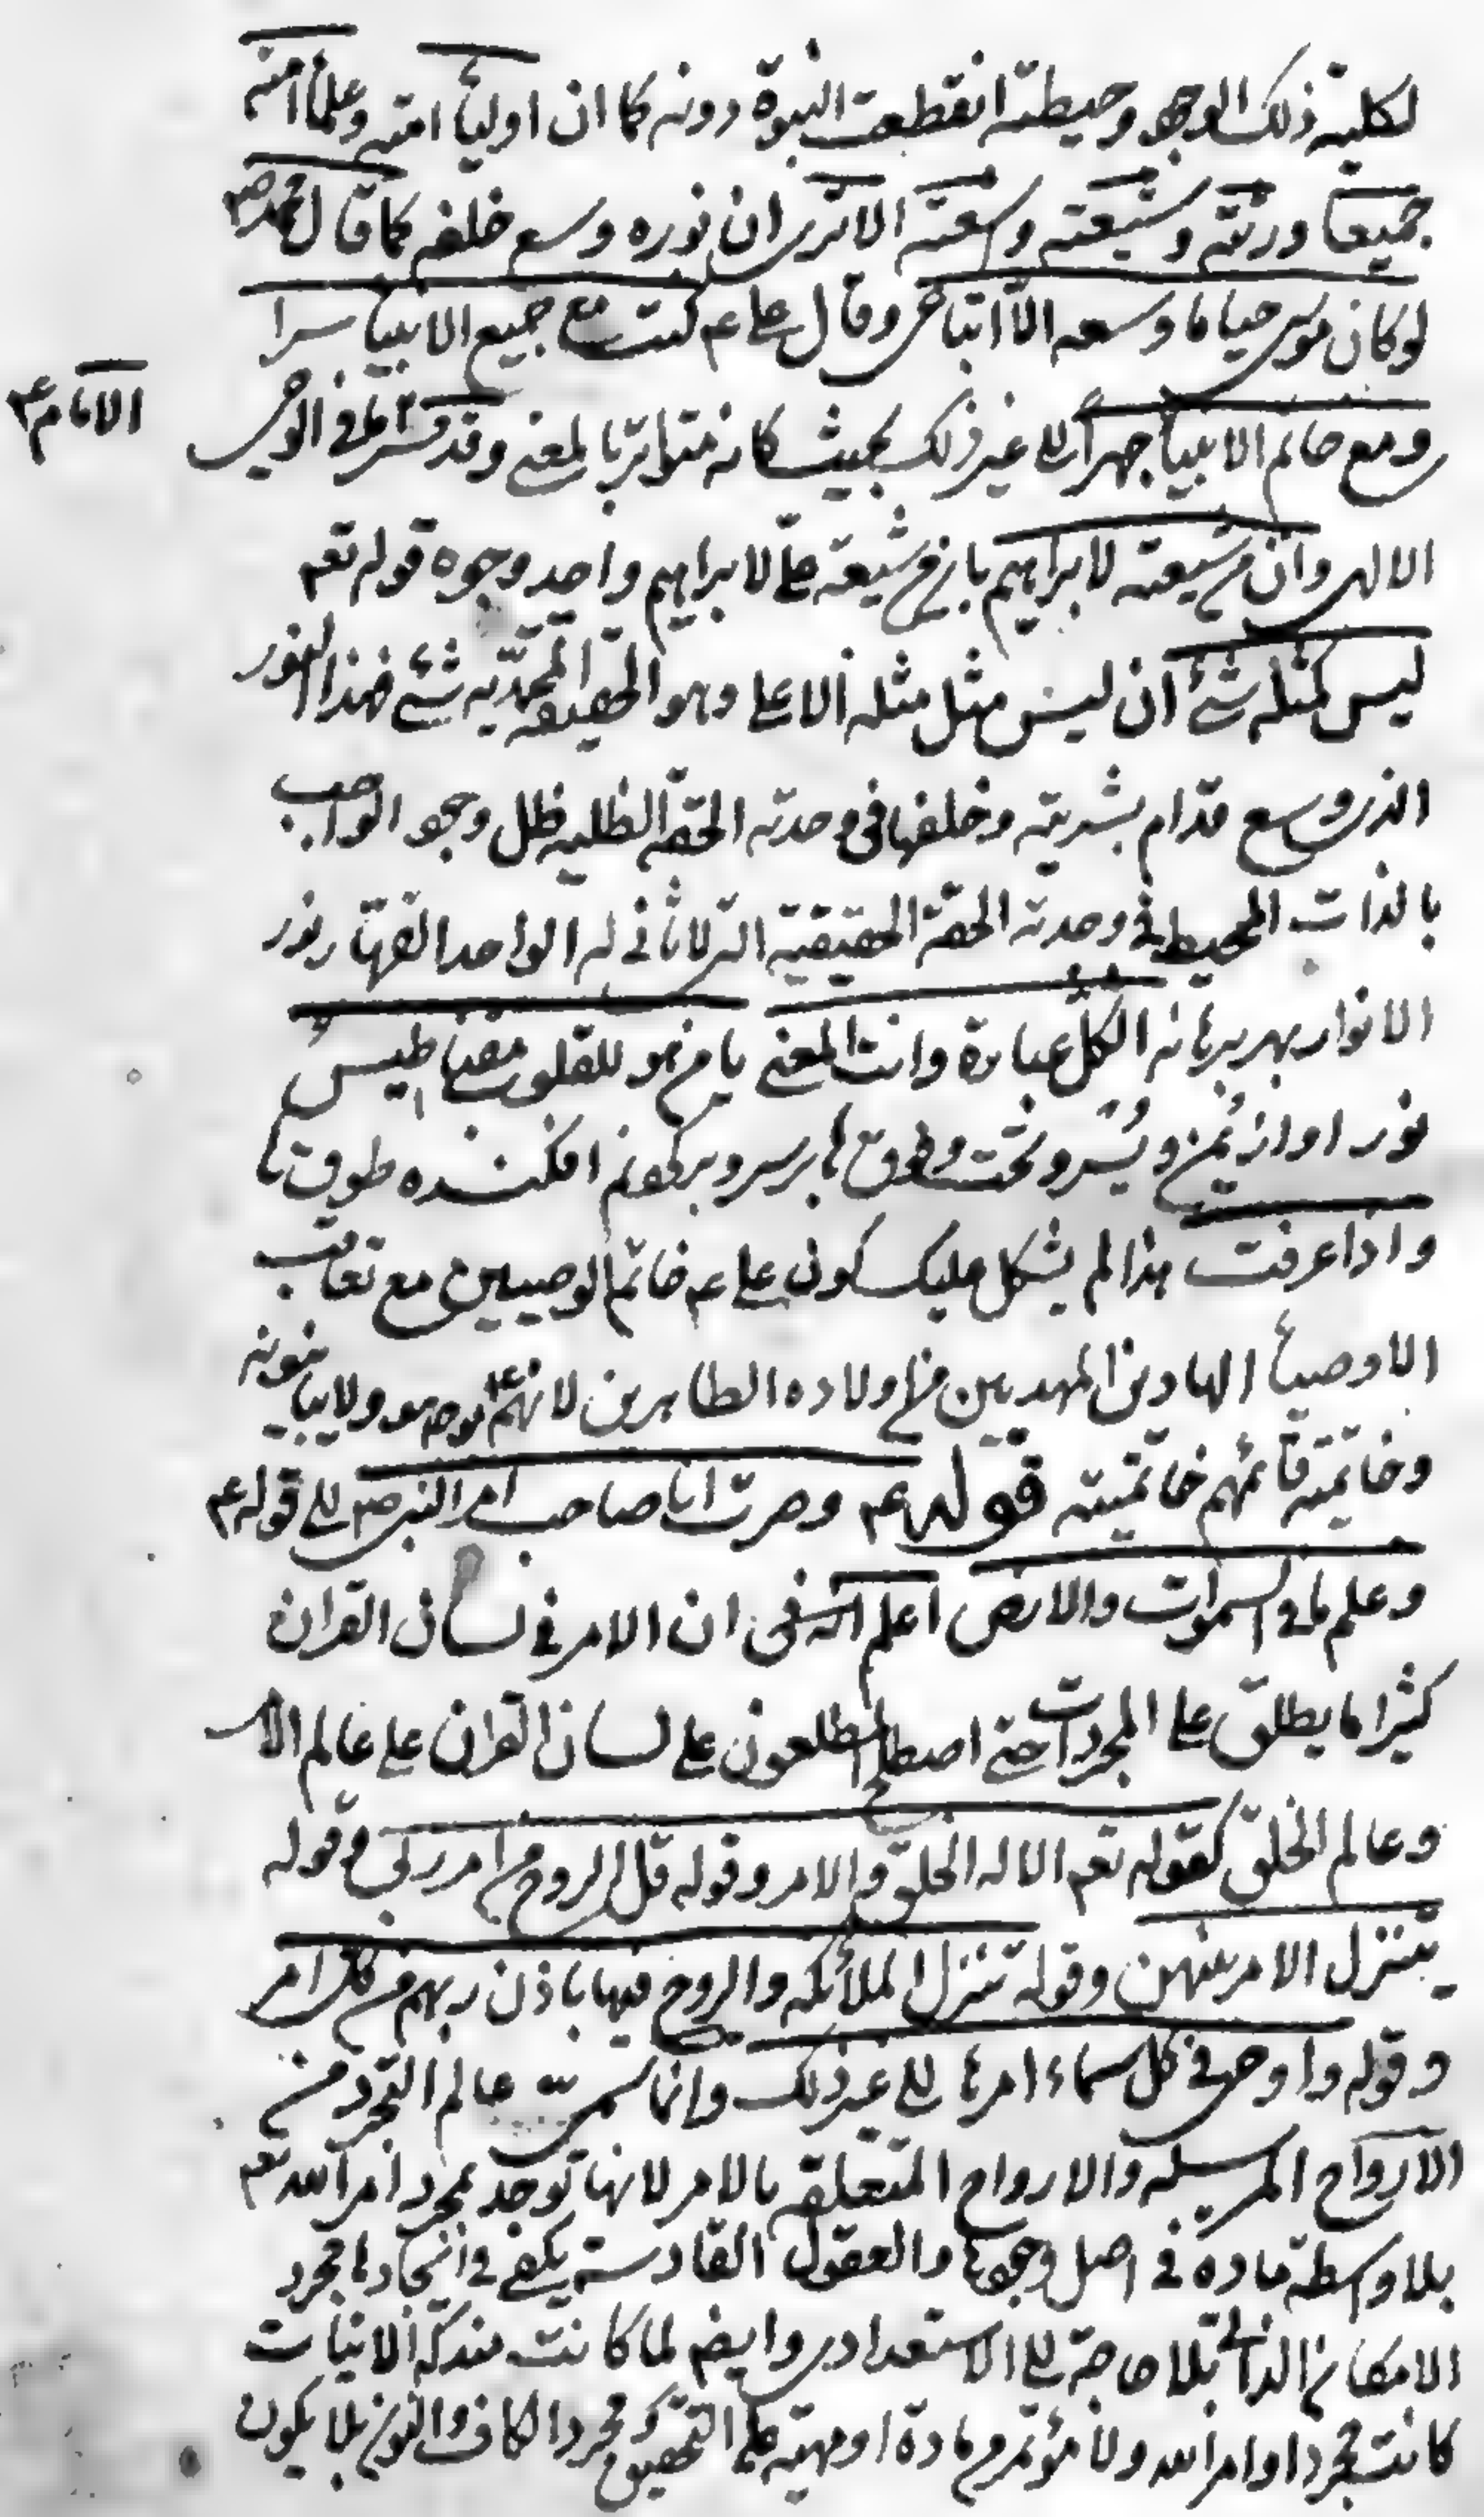 لكلية ذلك الوجود وحيطته انقطعت النبوة دونه كما ان اولياء امته وعلماء امته
جميعا ورثته وشيعته وسعته الا ترى ان نوره وسع خلفه كما قال محمد ص
لو كان موسى حيا ما وسعه الّا اتباعى وقال على ع كنت مع جميع الانبياء سرا
ومع خاتم الانبياء جهراً الى غير ذلك بحيث كانه متواتر بالمعنى وقد فسر ما فى الوحى
الامام ع
الالهى وان من شيعته لابراهيم بان من شيعة على لابراهيم واحد وجوه قوله تعم
ليس كمثله شئ ان ليس مثل مثله الاعلى وهو الحقيقة المحمّديه شئ فهذا النور
الذى وسع قدّام بشريته وخلفها فى وحدته الحقّة الظليه ظل وجود الواجب
بالذات المحيط فى وحدته الحقة الحقيقية التى لا ثانى له الواحد القهّار نور
الانوار بهر برهانه الكلّ عبارة وانت المعنى يا من هو للقلوب مغناطيسُ
نور او از يُمن و يُسر و تحت و فوق ها بر سر و بر گردنم افكنده طوق ما
واذا عرفت هذا لم يشكل عليك كون على ع خاتم الوصيين مع تعاقب
الاوصياء الهادين المهديين من اولاده الطاهرين لانهم ع نوره ولا يباينونه
وخاتمية قائمهم خاتميته قوله ع وصرت انا صاحب امر النبى ص الى قوله ع
وعلم ما فى السموات والارض اعلم انه ان الامر فى لسان القران
كثيرا ما يطلق على المجردات حتى اصطلح المطلعون على لسان القران على عالم الامر
وعالم الخلق كقوله تعم الا له الخلق والامر وقوله قل الروح من امر ربى وقوله
يتنزل الامر بينهن وقوله تنزل الملائكه والروح فيها باذن ربهم من كل امر
وقوله واوحى فى كل سماء امرها الى غير ذلك وانما سمى عالم التجرد من
الارواح المرسله والارواح المتعلقه بالامر لانها توجد بمجرد امر الله تعم
بلا واسطة مادة فى اصل وجودها والعقول القادسة يكفى فى ايجادها مجرد
الامكان الذاتى بلا حاجة الى الاستعدادى وايضم لما كانت مندكة الانيات
كانت مجرد اوامر الله ولا مؤتمر من مادة او مهية على التحقيق ومجرد الكاف والنون بلا يكون